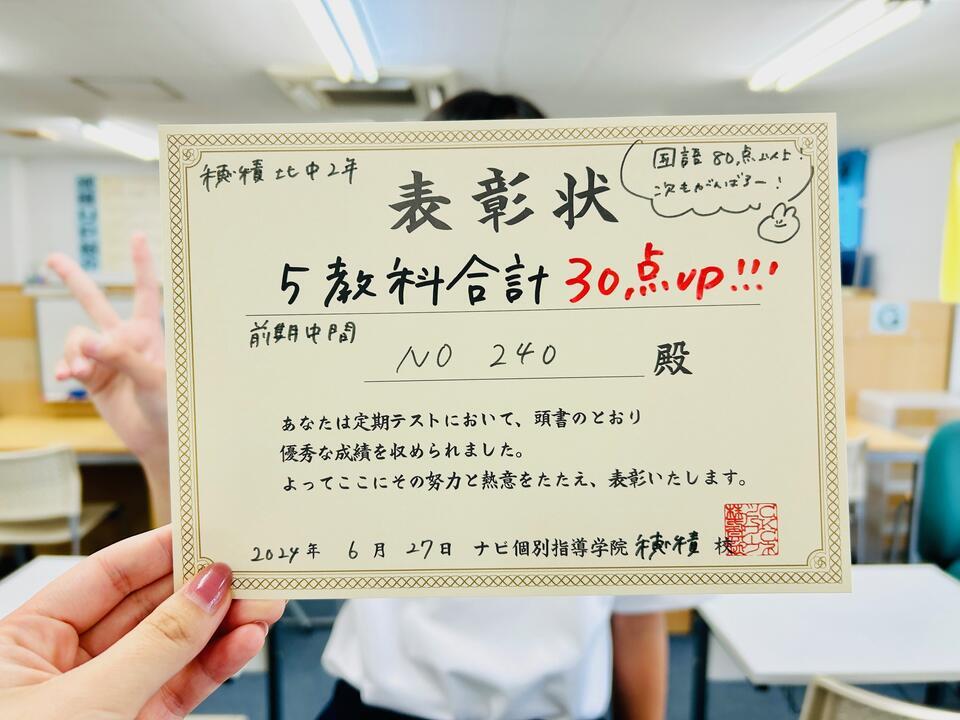 穂積北中2年
表彰状
国語80点以上!
次もがんばろー!
5教科合計30点up!!!
前期中間
NO 240 殿
あなたは定期テストにおいて、頭書のとおり
優秀な成績を収められました。
よってここにその努力と熱意をたたえ、表彰いたします。
2024年 6月 27日 ナビ個別指導学院 穂積 校